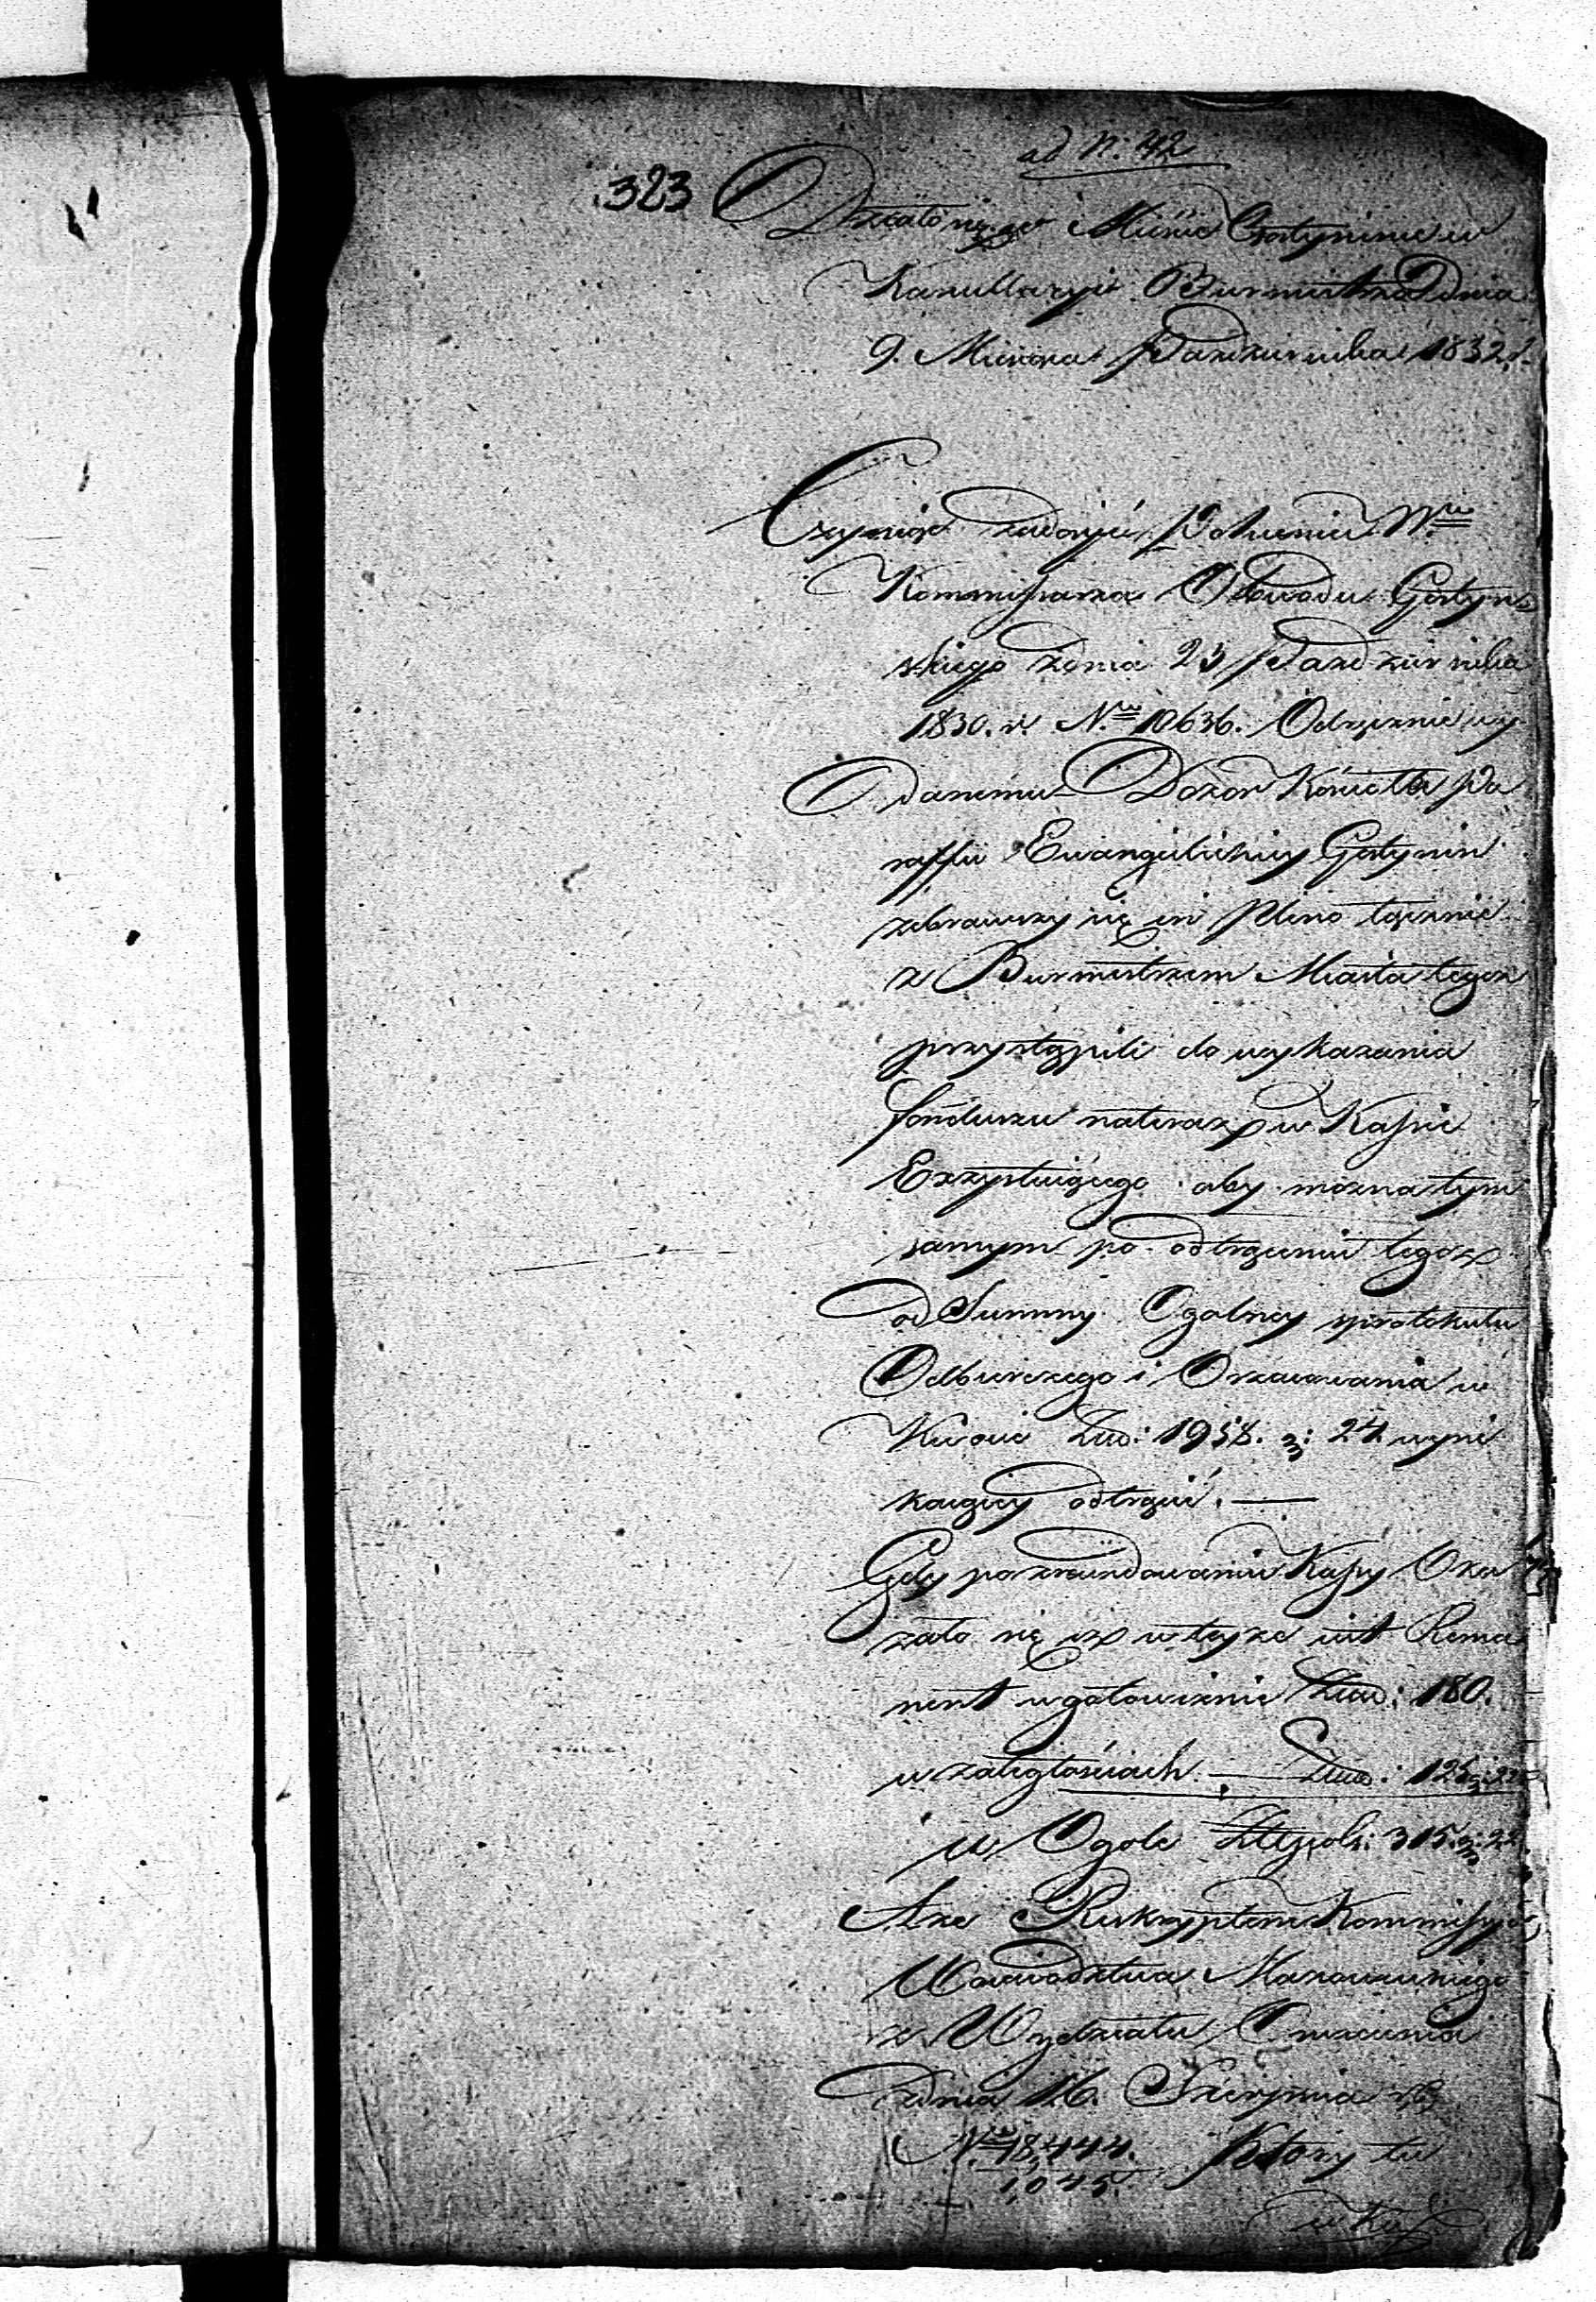 ad N: 42
323
Działo się w Mieście Gostyninie w
Kancellaryi Burmistrza Dnia
9. Miesiąca Pazdziernika 1832 r.
Czyniąc zadosyć Poleceniu W.
Kommissarza Obwodu Gostyn
skiego z dnia 23 Pazdziernika
1830. r. N. 10636. Odręcznie wy
danemu Dozór Kościoła Pa
raffii Ewangelickiey Gostynin
zebrawszy się in Pleno łącznie
z Burmistrzem Miasta tegoż
przystąpili do wykazania
funduszu nateraz w Kassie
Exzystuiącego aby można tym
samym po odtrąceniu tegoż
od Summy Ogolney z protokułu
Odbiorczego i Oszacowania w
Kwocie Złło: 1958. g: 24 wyni
kaiącey odtrącić. —
Gdy po zrewidowaniu Kassy Oka
zało się iż w teyże iest Rema
nent w gotowiznie Złło: 180.
w zaległościach — Złło: 125 g: 22
w Ogole Złłpols: 315. g: 22
Aże Reskryptem Kommissyi
Woiewództwa Mazowieckiego
z Wydziału Oswiecenia
z dnia 16. Sierpnia r. b.
N. 18,444.
1,045. Ktory tu